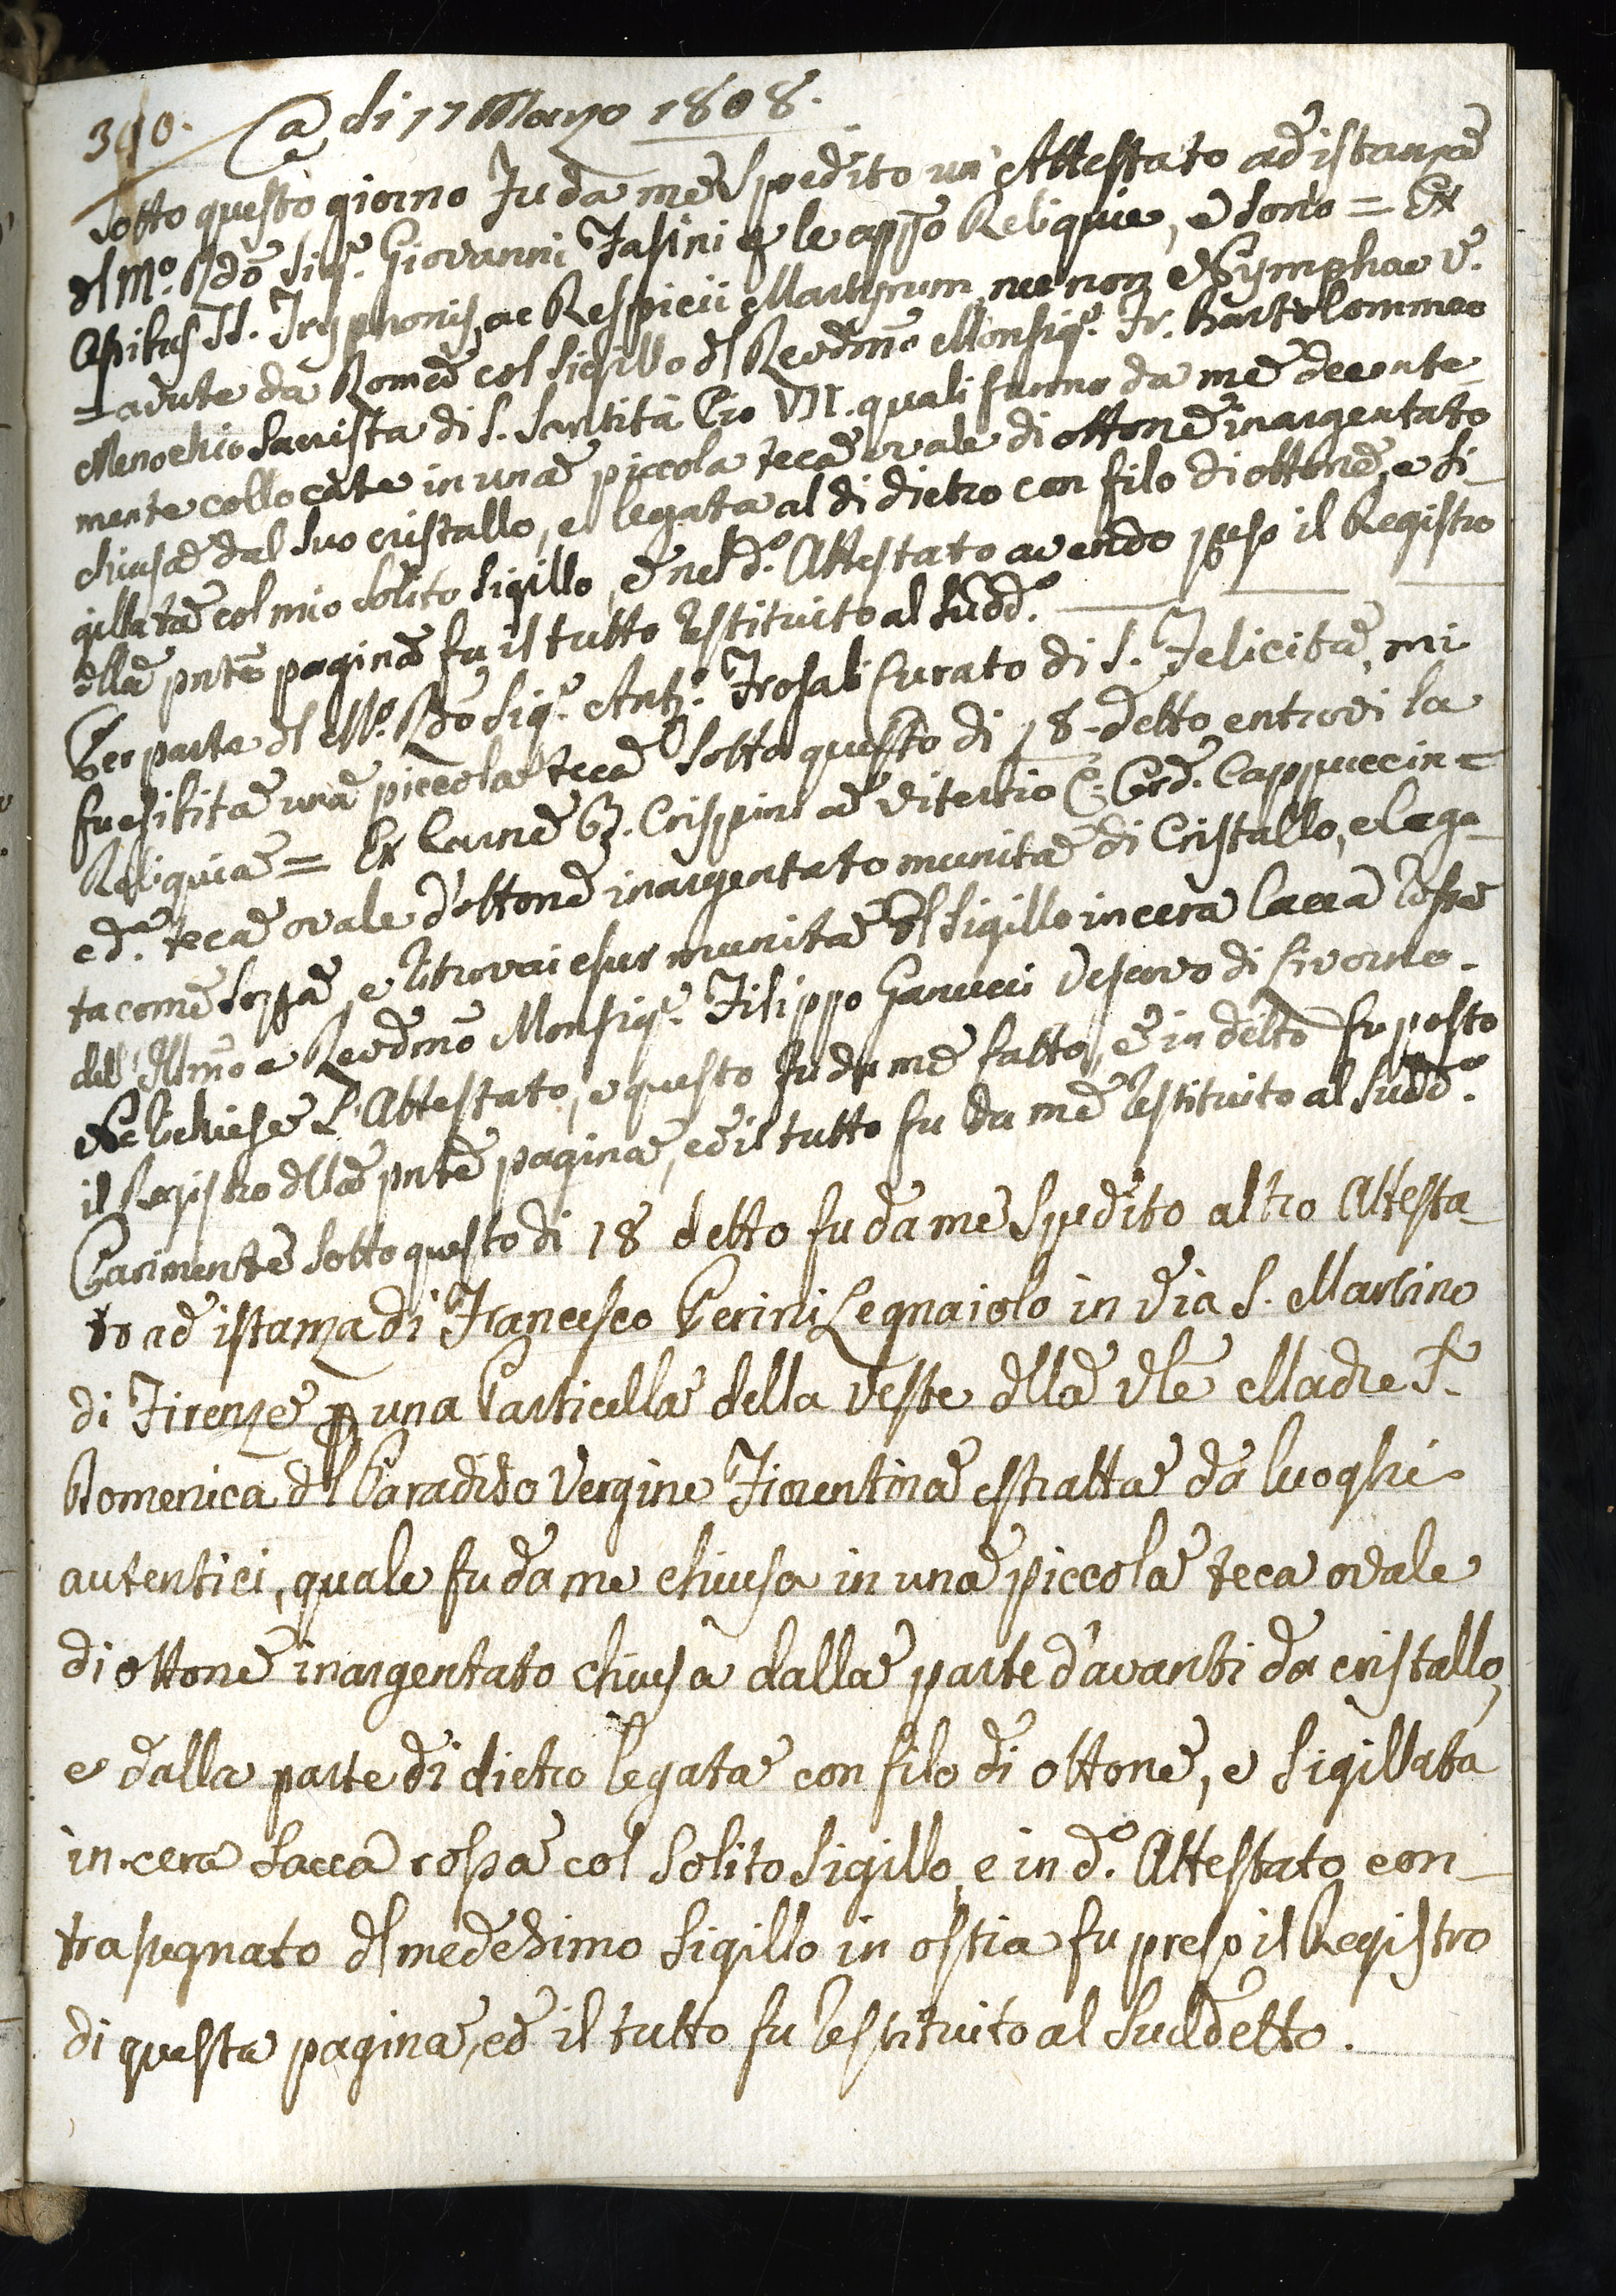 390. a di 17 Marzo 1808.
Sotto questo giorno Fu da me Spedito un Attestato ad istanza
dl Mo. Rdo Sigre. Giovanni Fasini p le appo Reliquie, e sono = Ex
Ossibus SS. Tryphonis, ac Respicii Martyrum, nec non Nymphae V.
= avute da Roma col Sigillo dl Revdmo Monsigre. Fr. Bartolommeo
Menochio Sacrista di S. Santità Pio VII. quali furno da me decente-
mente collocate in una piccola teca ovale di ottone inargentato
chiusa dal suo cristallo, e legata al di dietro con filo di ottone, e si-
gillata col mio solito Sigillo, e nel do. Attestato avendo preso il Registro
dlla pnte pagina fu il tutto restituito al Sudd.o
Per parte dl Mo. Rdo Sigre. Anto. Frosali Curato di S. Felicita, mi
fu esibita una piccola teca sotto questo di 18 detto entrovi la
Reliquia = Ex Carne B. Crispini a Viterbio C: Ord. Cappuccin =
e da. teca ovale d'ottone inargentato munita di Cristallo, e lega-
ta come Sopra, e ritrovai esser munita dl Sigillo in cera lacca rossa
dell Illmo e Revdmo Monsigre. Filippo Ganucci Vescovo di Livorno.
Ne richiese L'Attestato, e questo fu da me fatto, e in detto fu posto
il Registro dlla pnte pagina, ed il tutto fu da me restituito al Sudd.o
Parimente sotto questo di 18 detto fu da me Spedito altro Attesta-
to ad istanza di Francesco Perini Legnaiolo in Via S. Martino
di Firenze p una Particella della veste dlla Vle Madre Sr.
Domenica dl Paradiso Vergine Fiorentina estratta da luoghi
autentici, quale fu da me chiusa in una piccola teca ovale
di ottone inargentato chiusa dalla parte d'avanti da cristallo,
e dalla parte di dietro legata con filo di ottone, e Sigillata
in cera Lacca rossa col Solito Sigillo, e in do. Attestato con-
trasegnato dl medesimo Sigillo in ostia fu preso il Registro
di questa pagina, ed il tutto fu restituito al Suddetto.